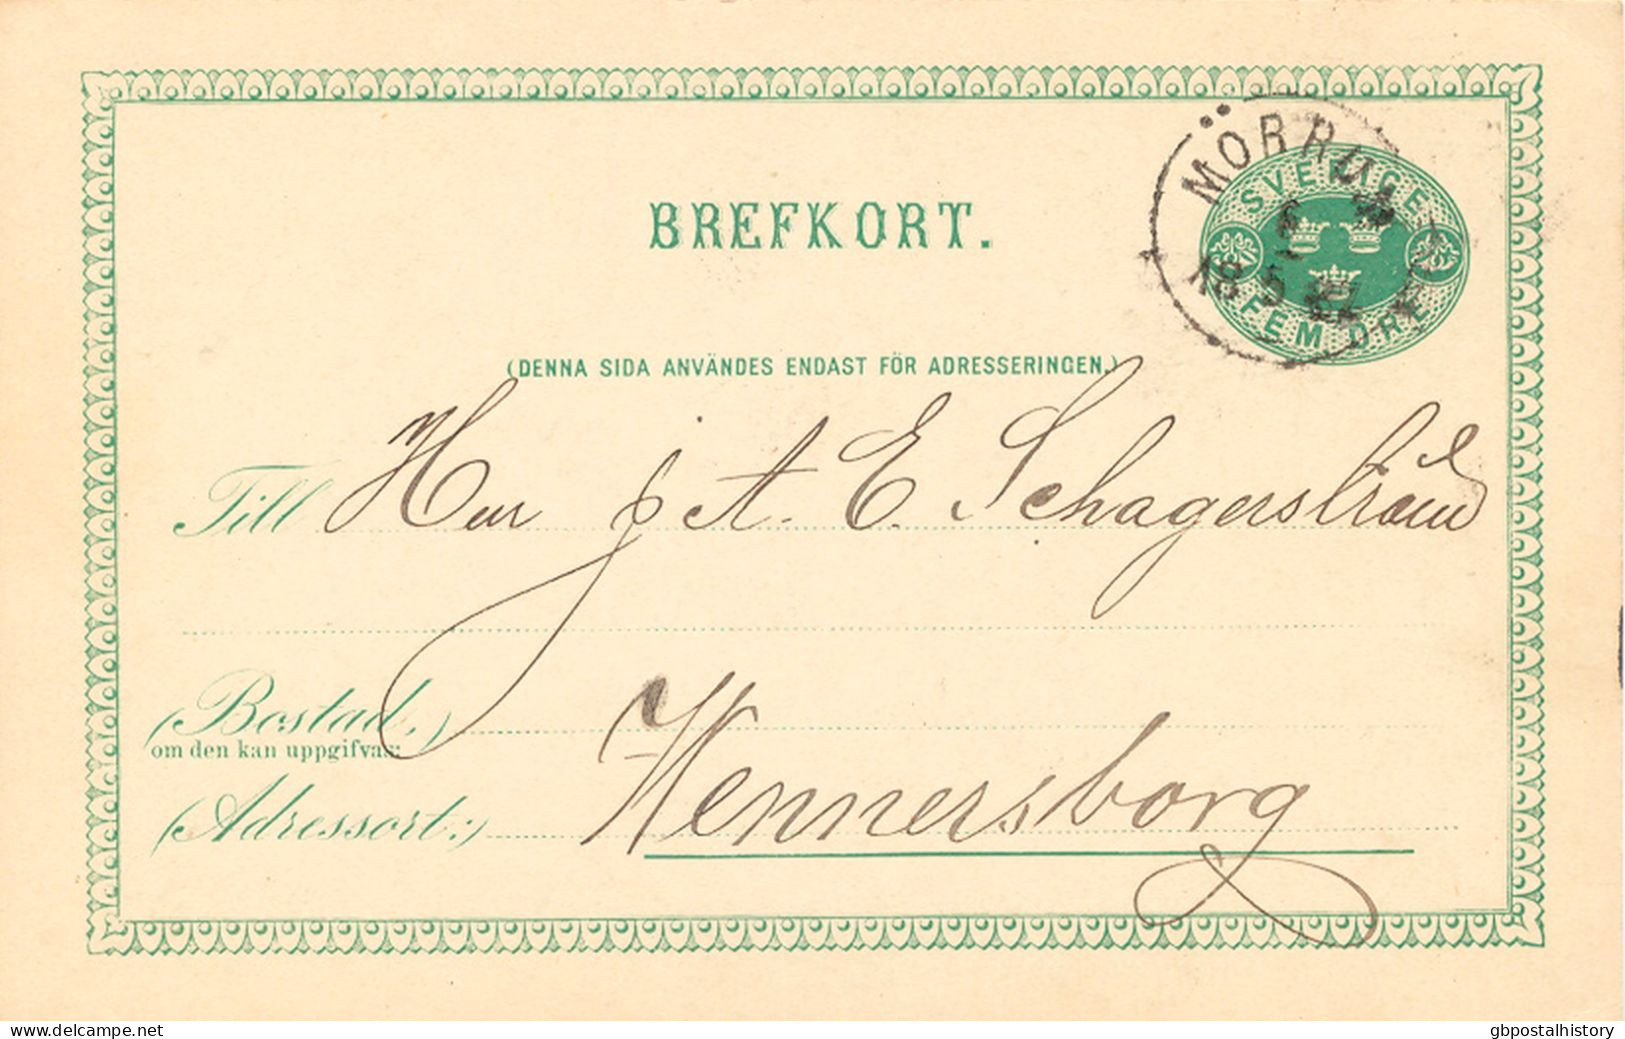 BREFKORT.
MÖRRUM
SVERIGE
6
18 5
FEM ÖRE
(DENNA SIDA ANVÄNDES ENDAST FÖR ADRESSERINGEN.)
Till Herr J A. E. Schagerström
(Bostad,)
om den kan uppgifvas:
(Adressort:) Wennersborg
www.delcampe.net
gbpostalhistory